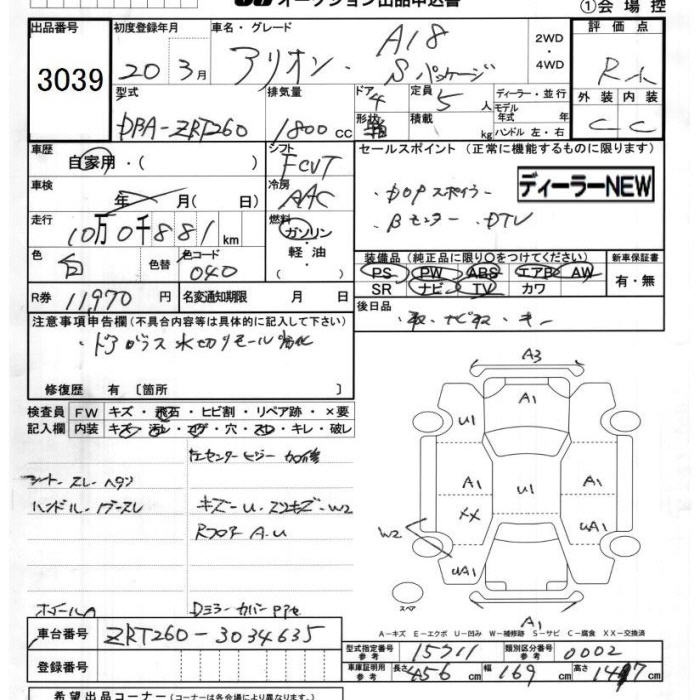 オークション出品申込書
①会場控
出品番号
3039
初度登録年月
20年3月
車名・グレード
アリオン・A18
Sパッケージ
2WD
・4WD
評価点
R
外装 内装
C C
型式
DBA-ZRT260
排気量
1800cc
ドア 4
形状
定員 5人
積載 kg
ディーラー・並行
モデル年式 年
ハンドル 左・右
車歴
自家用・( )
シフト
FCVT
セールスポイント (正常に機能するものに限ります)
・DOPスポイラー
・Bモニター・DTV
ディーラーNEW
車検
年 月( 日)
冷房
AAC
走行
10万0千881km
燃料
ガソリン
・軽油
( )
色
白
色替
色コード
040
装備品 (純正品に限り○をつけてください)
PS PW ABS エアB AW
SR ナビ TV カワ
新車保証書
有・無
R券 11,970円
名変通知期限 月 日
後日品
・取・ナビ取・キー
注意事項申告欄(不具合内容等は具体的に記入して下さい)
・ドアガラス水切りモール劣化
修復歴 有 [箇所 ]
検査員記入欄
FW キズ・飛石・ヒビ割・リペア跡・×要
内装 キズ・汚レ・コゲ・穴・スレ・キレ・破レ
シート・スレ・ヘタリ
ハンドル・
キズ・U・スリキズ・W2
Rフロア A.U
A3
A1
U1
A1 U1 A1
XX
UA1
W2
UA1 A1
スペア
A1
Dミラーカバー
A-キズ E-エクボ U-凹み W-補修跡 S-サビ C-腐食 XX-交換済
車台番号 ZRT260-3034635
登録番号
型式指定番号 参考 15711
類別区分番号 参考 0002
車庫証明用 参考 長さ 456cm 幅 169cm 高さ 147cm
希望出品コーナー(コーナーは各会場により異なります)